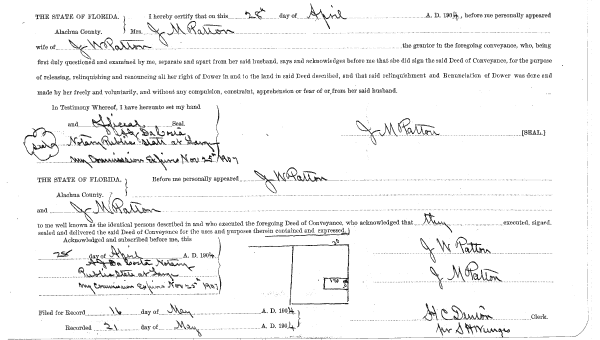 THE STATE OF FLORIDA. I hereby certify that on this 28th day of April A. D. 1904, before me personally appeared
Alachua County. Mrs. J M Patton
wife of J W Patton the grantor in the foregoing conveyance, who, being
first duly questioned and examined by me, separate and apart from her said husband, says and acknowledges before me that she did sign the said Deed of Conveyance, for the purpose
of releasing, relinquishing and renouncing all her right of Dower in and to the land in said Deed described, and that said relinquishment and Renunciation of Dower was done and
made by her freely and voluntarily, and without any compulsion, constraint, apprehension or fear of or from her said husband.
In Testimony Whereof, I have hereunto set my hand
and Official Seal.
J M Patton [SEAL.]
Seal
Notary Public State at Large
My Commission Expires Nov 25th 1907
THE STATE OF FLORIDA. Before me personally appeared J W Patton
Alachua County.
and J M Patton
to me well known as the identical persons described in and who executed the foregoing Deed of Conveyance, who acknowledged that they executed, signed,
sealed and delivered the said Deed of Conveyance for the uses and purposes therein contained and expressed.
Acknowledged and subscribed before me, this
28 day of April A. D. 1904
J W Patton
Notary
Public State at Large
J M Patton
My Commission Expires Nov 25th 1907
Filed for Record 16 day of May A. D. 1904
H C Denton Clerk.
Recorded 21 day of May A. D. 1904
per